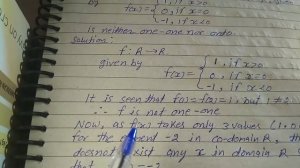 by
f(x) = { 1, if x>0
0, if x=0
-1, if x<0
is neither one-one nor onto.
Solution:
f: R → R
given by
f(x) = { 1, if x>0
0, if x=0
-1, if x<0
It is seen that f(1) = f(2) = 1, but 1 ≠ 2
∴ f is not one-one
Now, as f(x) takes only 3 values (1, 0,
for the element -2 in co-domain R, th
doesnot exist any x in domain R